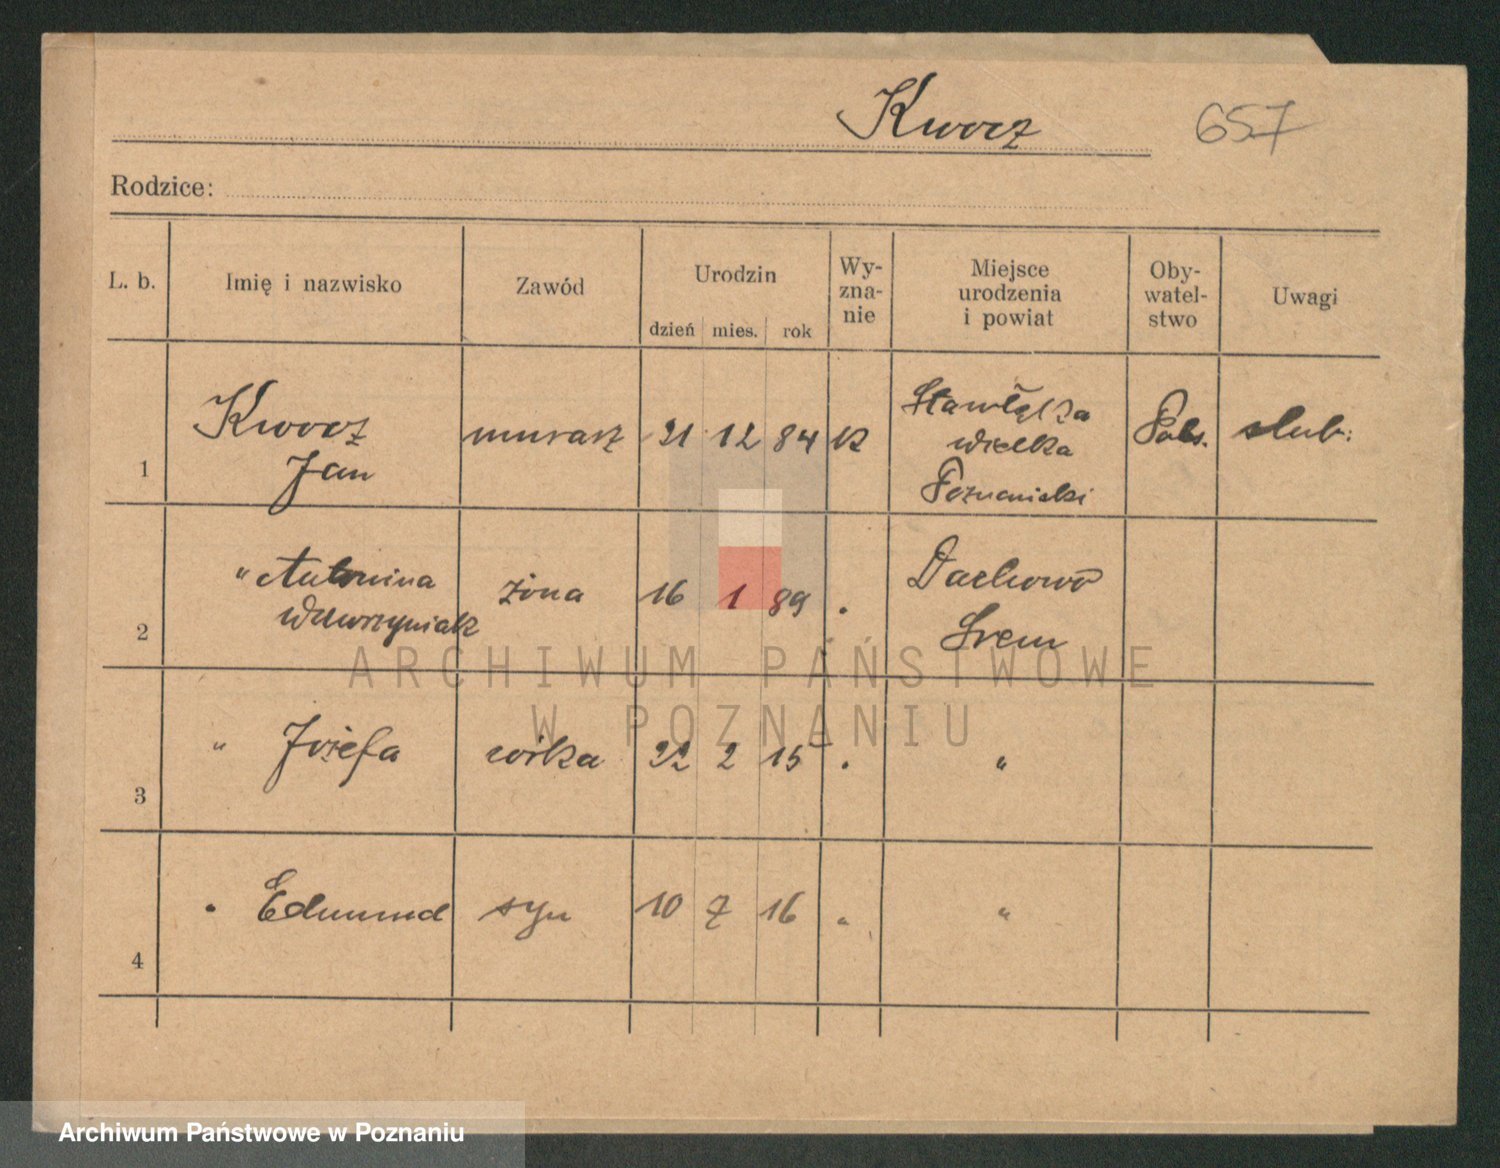 Kwocz 657
Rodzice:
L. b. Imię i nazwisko Zawód Urodzin dzień mies. rok Wy-zna-nie Miejsce urodzenia i powiat Oby-watel-stwo Uwagi
1 Kwocz Jan murarz 21 12 84 k wielka Poznański Pols. slub:
2 " Antonina Wawrzyniak żona 16 1 89 . Dachowo Srem
3 " Józefa córka 22 2 15 . "
4 " Edmund syn 10 7 16 " "
ARCHIWUM PAŃSTWOWE
W POZNANIU
Archiwum Państwowe w Poznaniu